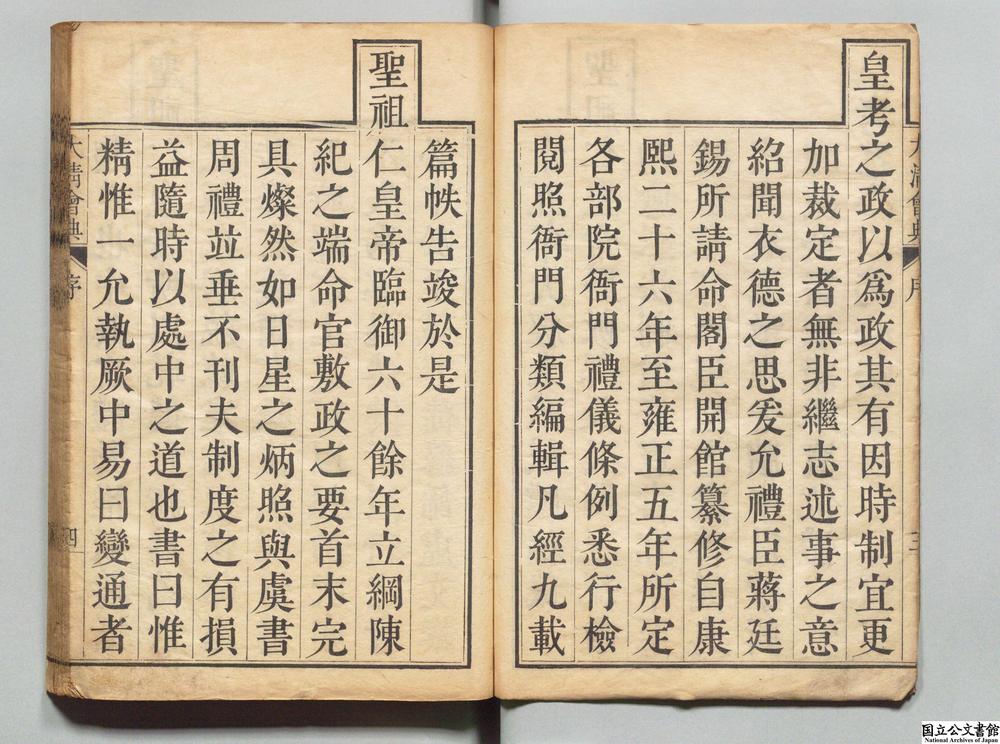 皇考之政以爲政其有因時制宜更
加裁定者無非繼志述事之意
紹聞衣德之思爰允禮臣蔣廷
錫所請命閣臣開館纂修自康
熙二十六年至雍正五年所定
各部院衙門禮儀條例悉行檢
閱照衙門分類編輯凡經九載
篇帙告竣於是
聖祖仁皇帝臨御六十餘年立綱陳
紀之端命官敷政之要首末完
具燦然如日星之炳照與虞書
周禮竝垂不刊夫制度之有損
益隨時以處中之道也書曰惟
精惟一允執厥中易曰變通者
大清會典
序
四
国立公文書館
National Archives of Japan